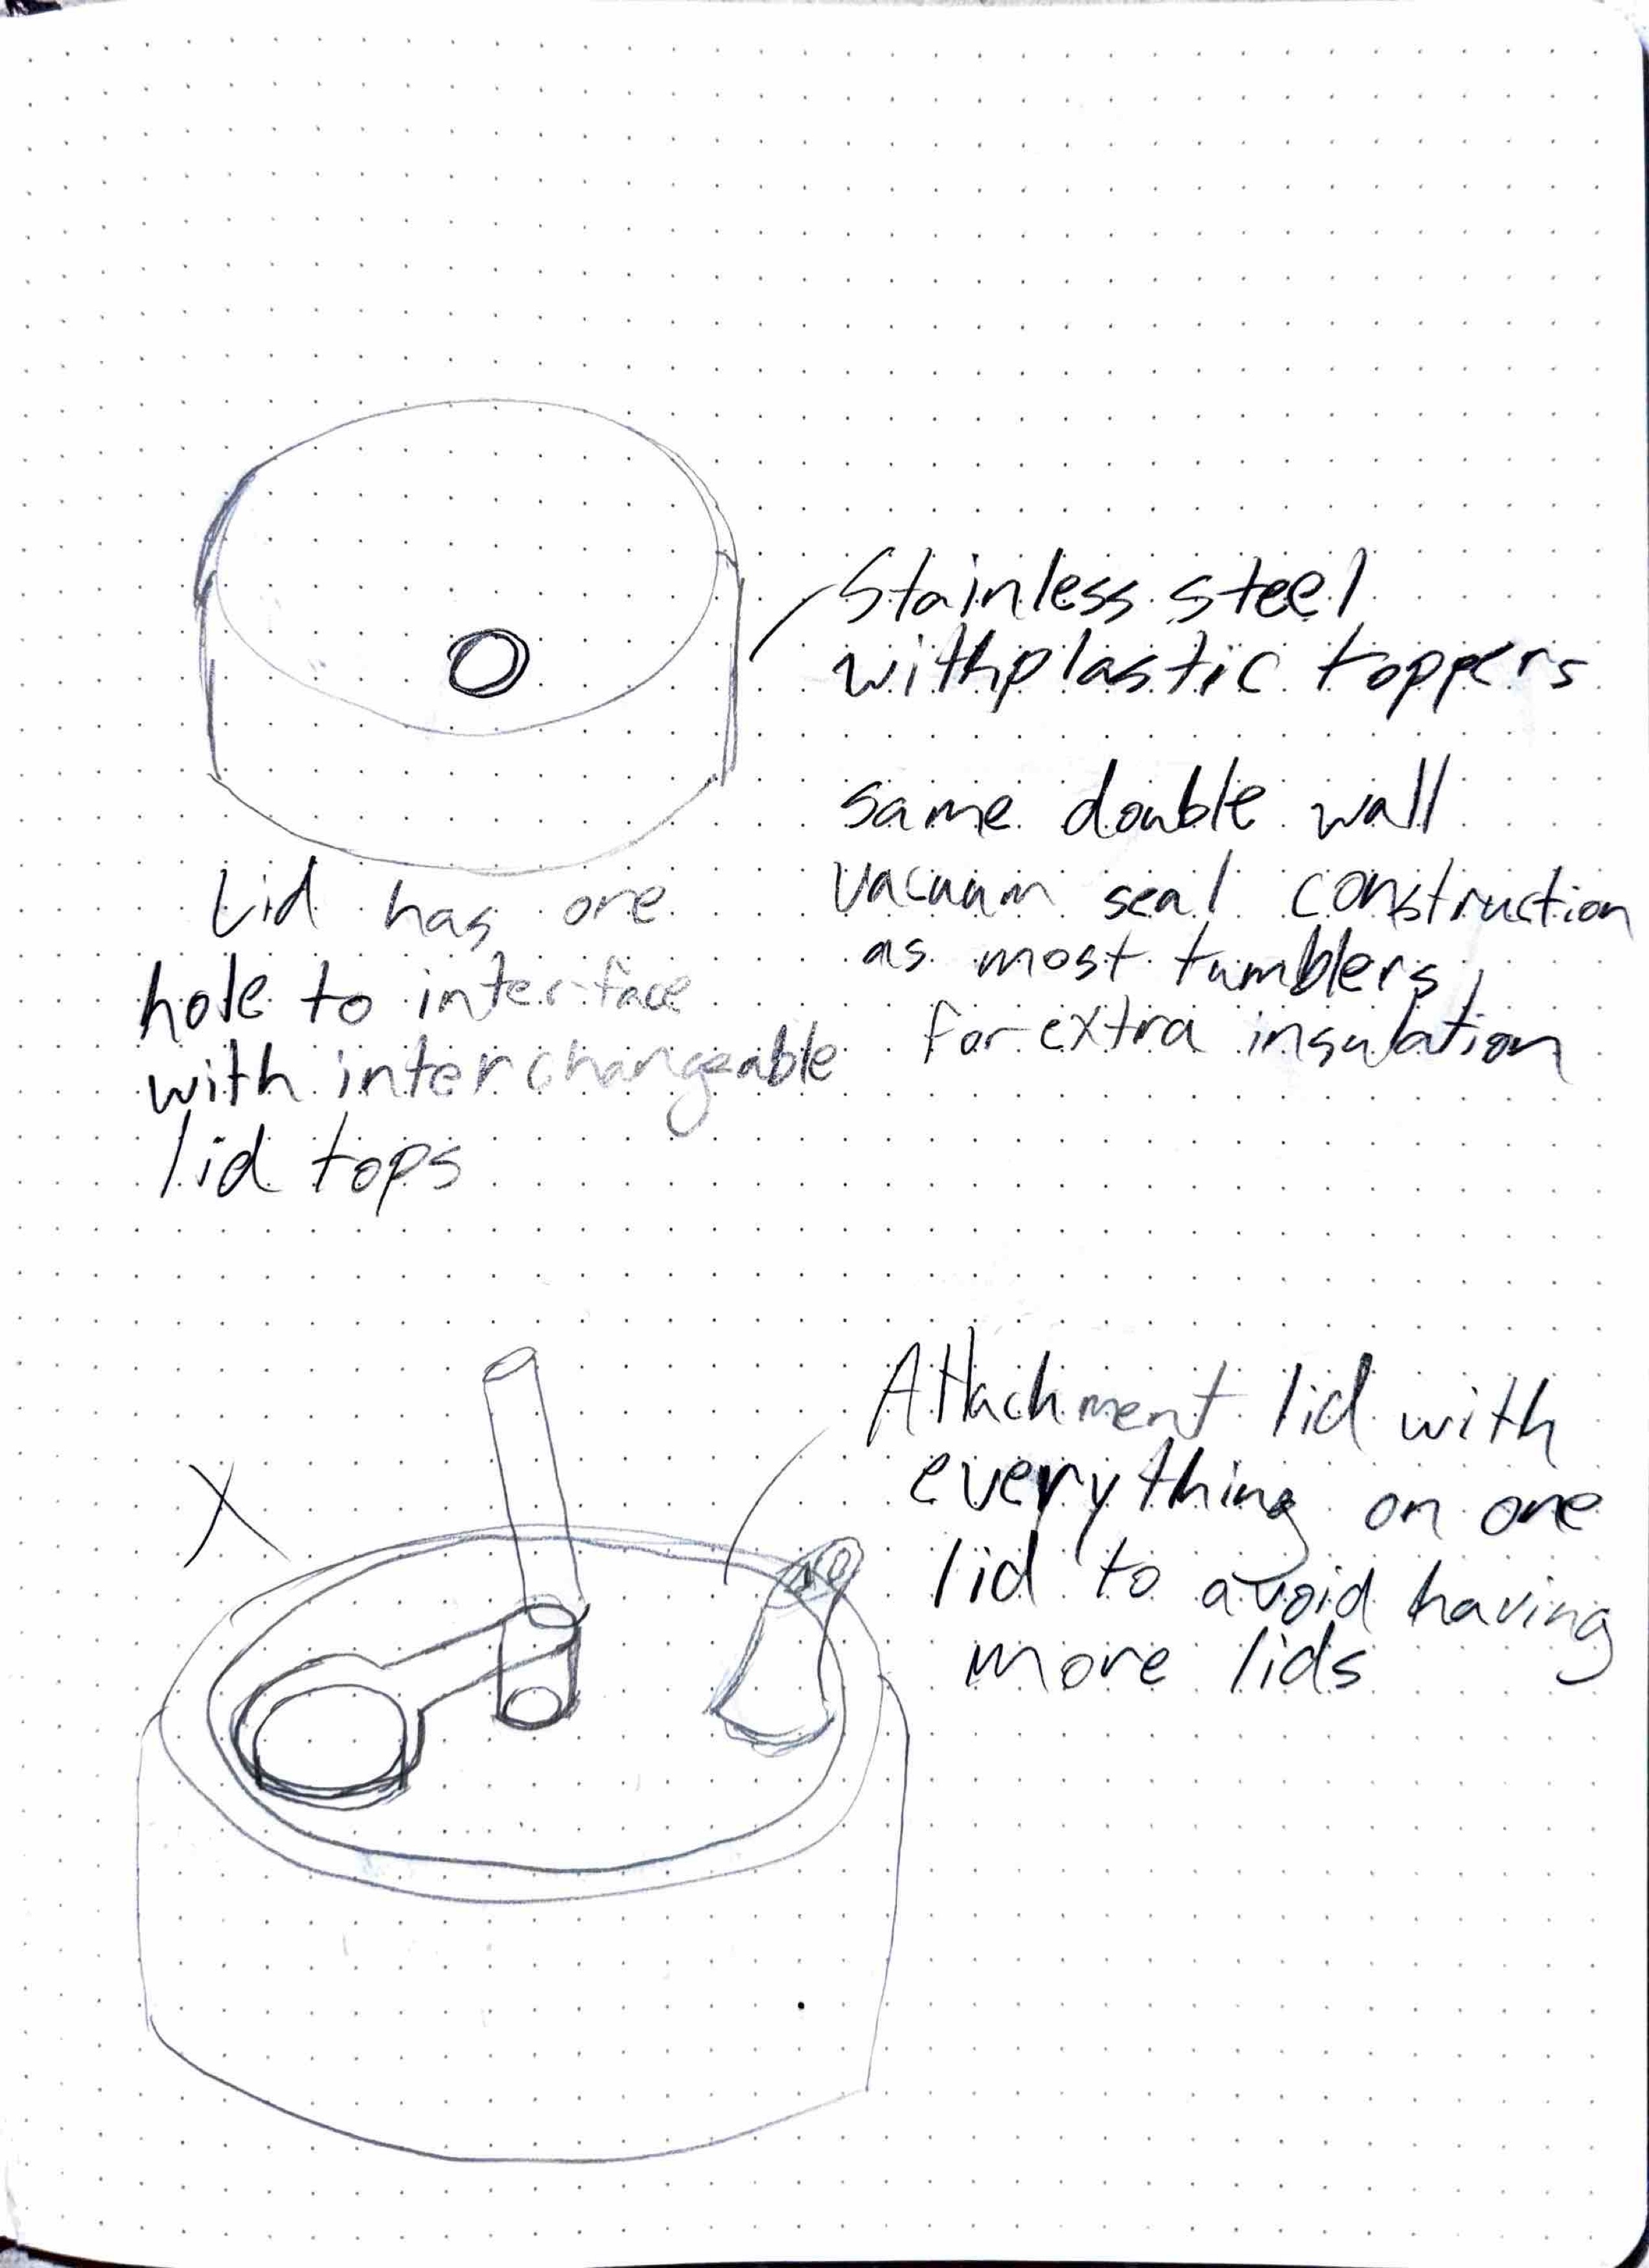 Stainless steel
withplastic toppers
same double wall
vacuum seal construction
as most tumblers,
for extra insulation
Lid has one
hole to interface
with interchangeable
lid tops
Attachment lid with
everything on one
lid to avoid having
more lids
X